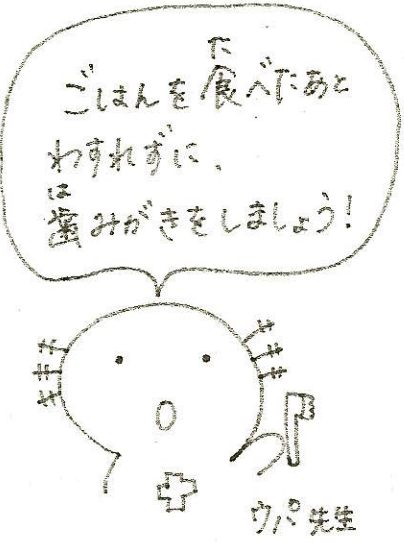 ごはんを食べたあと
わすれずに、
歯みがきをしましょう!
ウパ先生